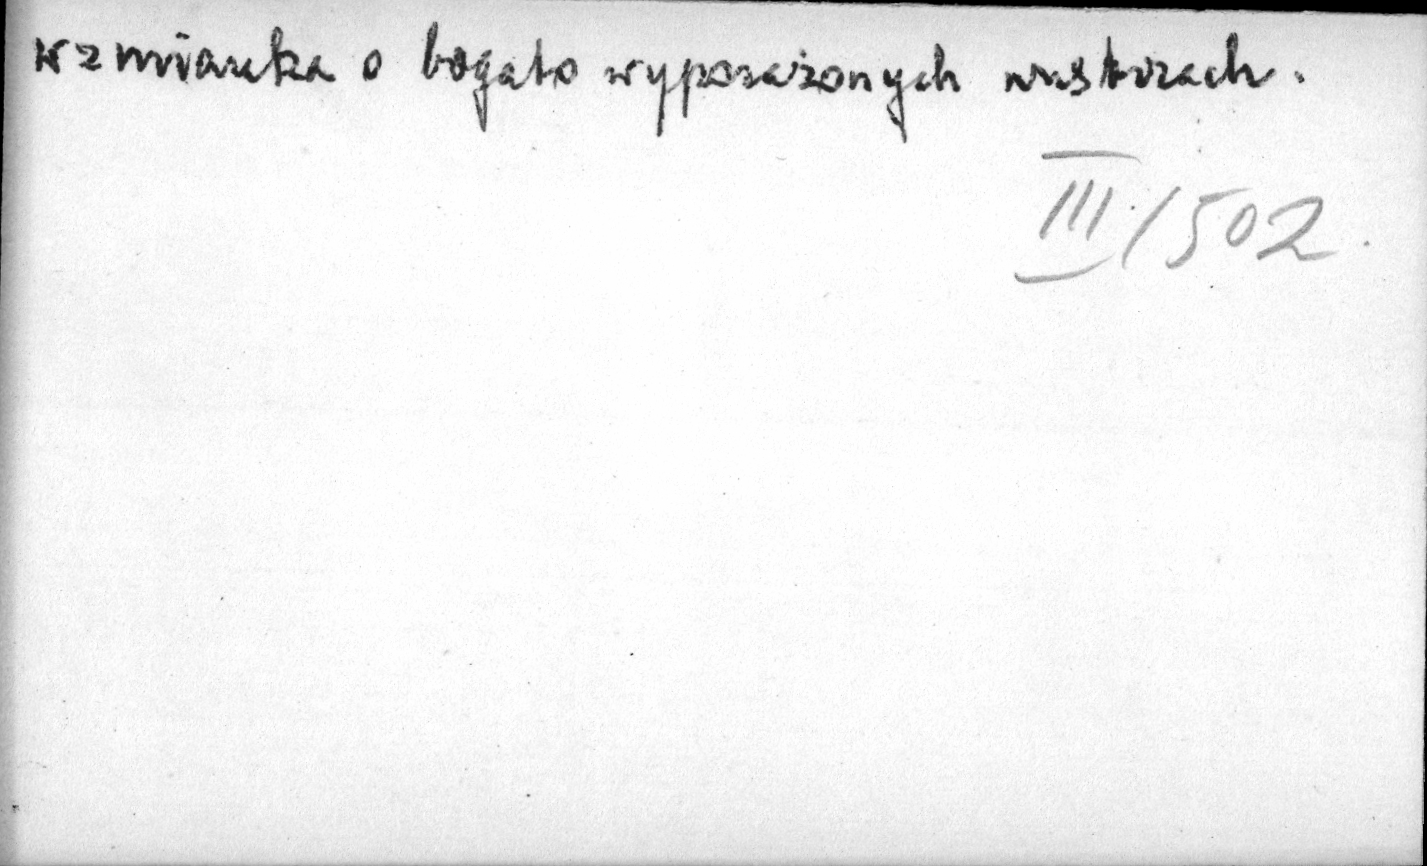 wzmianka o bogato wyposażonych wnętrzach.
III/502.